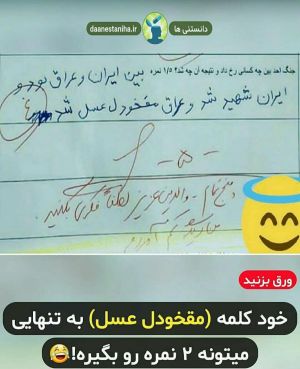 دانستنی ها
daanestaniha.ir
جنگ احد بین چه کسانی رخ داد و نتیجه آن چه شد؟ ۱/۵ نمره بین ایران و عراق بود و
ایران شهید شد و عراق مقخودل عسل شد
والدین عزیز لطفاً فکری بکنید.
ورق بزنید
خود کلمه (مقخودل عسل) به تنهایی
میتونه ۲ نمره رو بگیره!😂